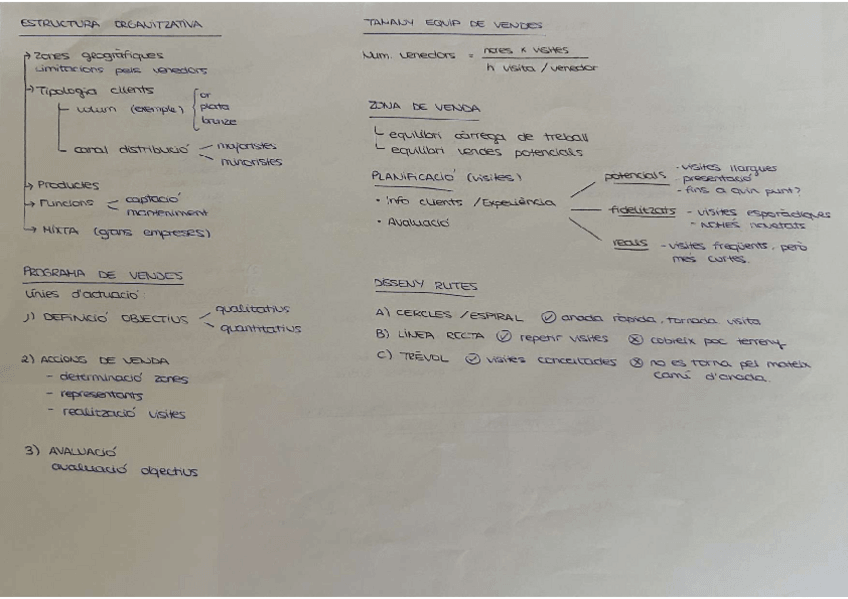 ESTRUCTURA ORGANITZATIVA
→ Zones geogràfiques
Limitacions pels venedors
→ Tipologia clients
volum (exemple)
or
plata
bronze
canal distribució
majoristes
minoristes
→ Productes
→ Funcions
captació
manteniment
→ MIXTA (grans empreses)
PROGRAMA DE VENDES
Línies d'actuació:
1) DEFINICIÓ OBJECTIUS
qualitatius
quantitatius
2) ACCIONS DE VENDA
- determinació zones
- representants
- realització visites
3) AVALUACIÓ
avaluació objectius
TAMANY EQUIP DE VENDES
Núm. venedors = hores x visites
h visita / venedor
ZONA DE VENDA
equilibri càrrega de treball
equilibri vendes potencials
PLANIFICACIÓ (visites)
• Info clients / Experiència
• Avaluació
potencials
- visites llargues
presentació
- fins a quin punt?
fidelitzats - visites esporàdiques
- NOMÉS novetats
reals - visites freqüents, però
més curtes.
DISSENY RUTES
A) CERCLES / ESPIRAL ✓ anada ràpida, tornada visita
B) LÍNEA RECTA ✓ repetir visites ✗ cobreix poc terreny
C) TRÉVOL ✓ visites concertades ✗ no es torna pel mateix
camí d'anada.